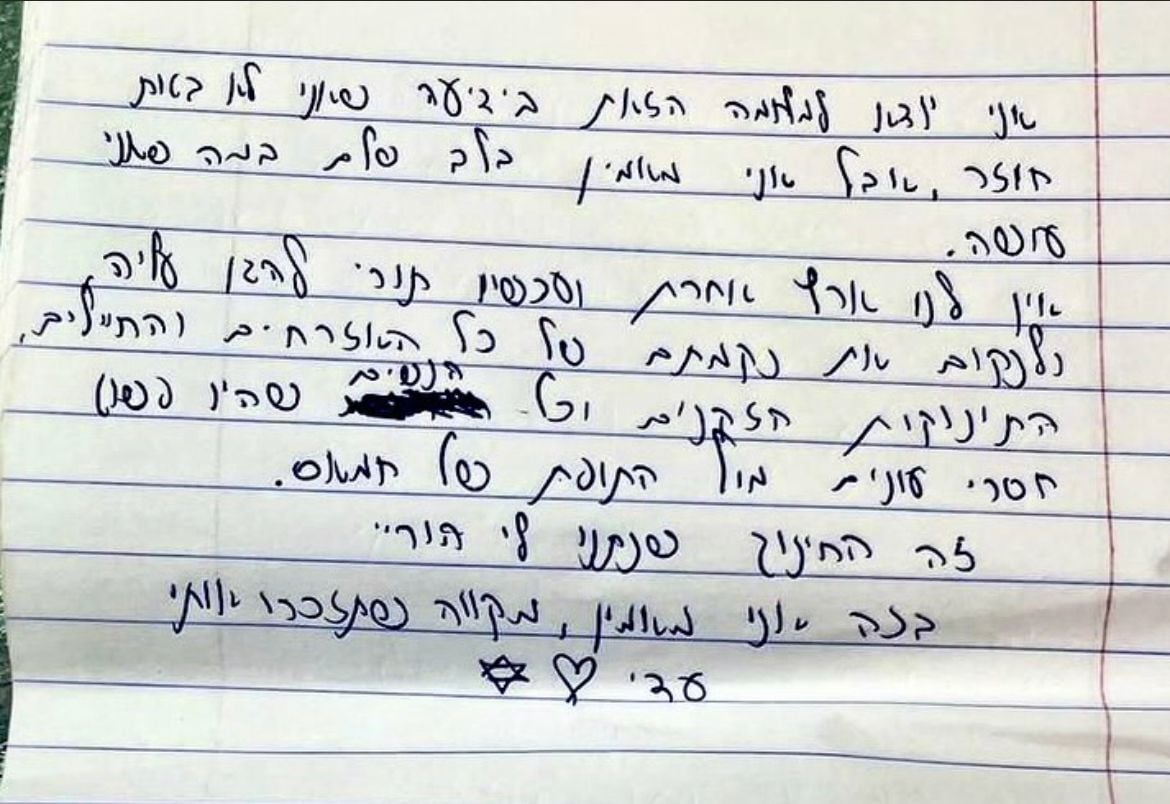 אני יוצא למלחמה הזאת בידיעה שאני לא בטוח
חוזר, אבל אני מאמין בלב שלם במה שאני
עושה.
אין לנו ארץ אחרת ועכשיו תורי להגן עליה
ולנקום את נקמתם של כל האזרחים והחיילים,
התינוקות הזקנים וכל הנשים שהיו
חסרי אונים מול התופת של חמאס.
זה החינוך שנתנו לי הוריי
בזה אני מאמין, מקווה שתזכרו אותי
עדי ♡ ✡